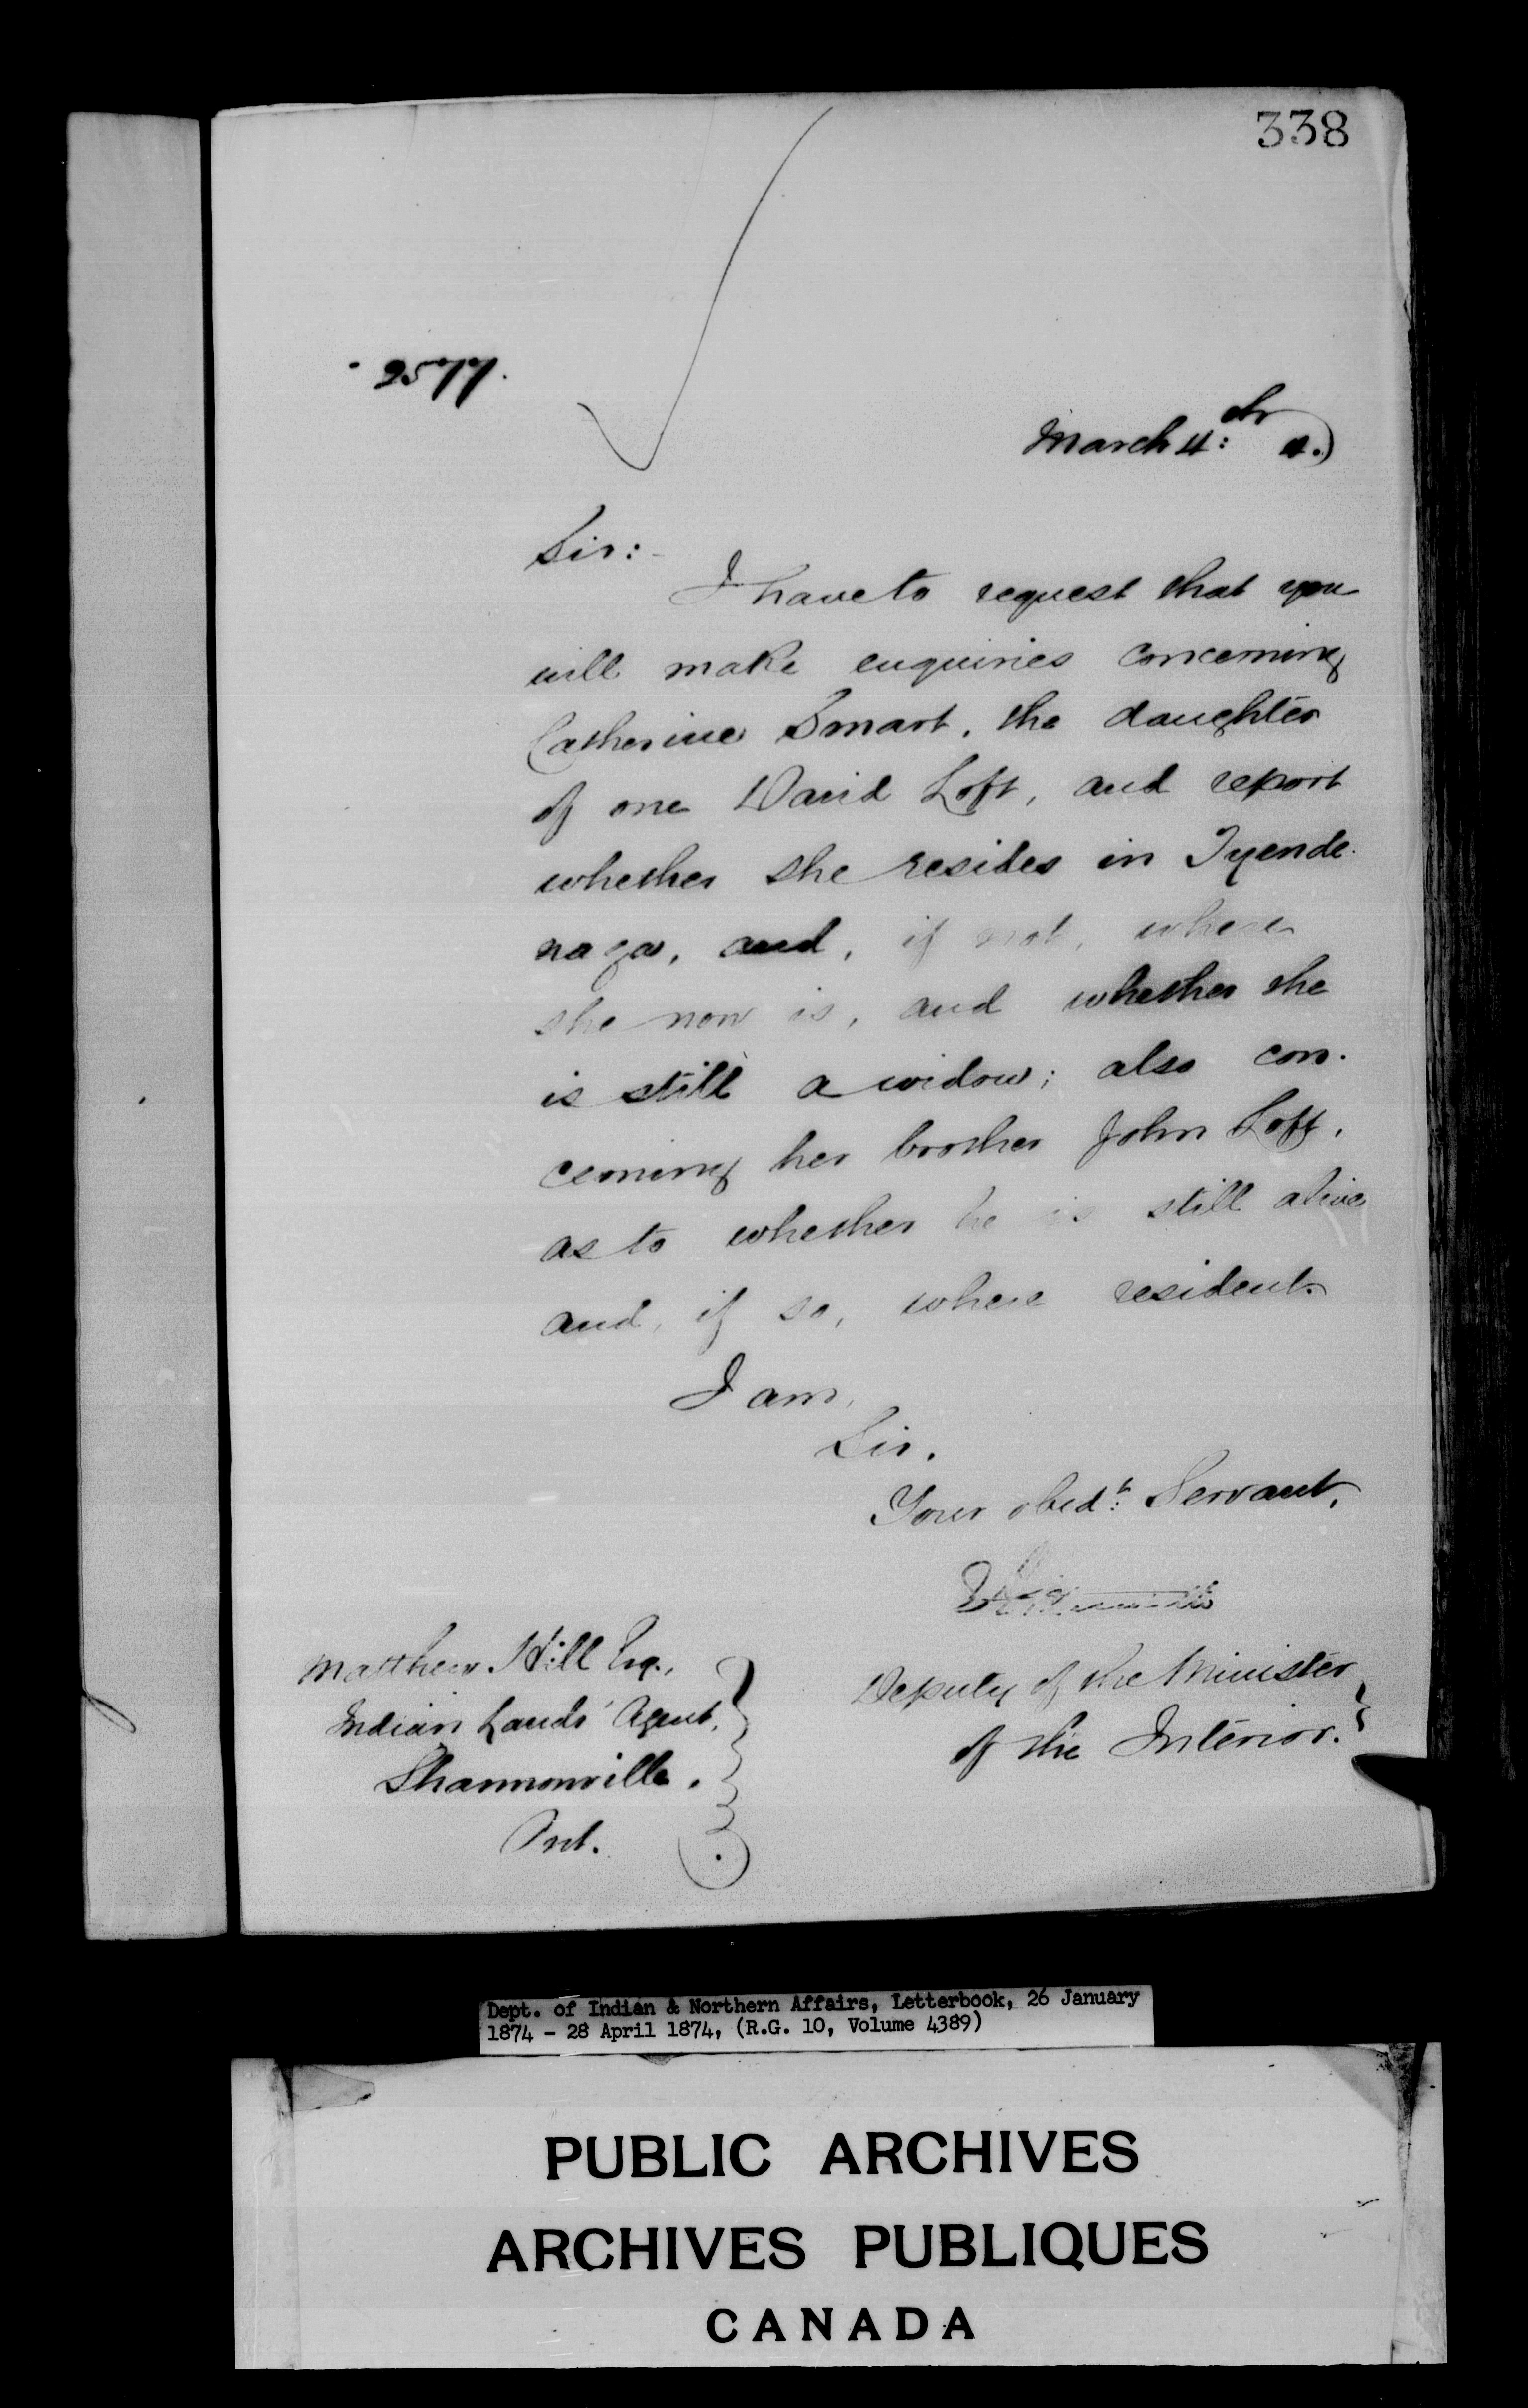 338
2577.
March 4:th 4.)
Sir:-
I have to request that you
will make enquiries concerning
Catherine Smart, the daughter
of one David Loft, and report
whether she resides in Tyende-
naga, and, if not, where
she now is, and whether she
is still a widow; also con-
cerning her brother John Loft,
as to whether he is still alive
and, if so, where resident.
I am,
Sir,
Your obedt: Servant,
Deputy of the Minister
of the Interior.
Matthew Hill Esq.,
Indian Lands' Agent,
Shannonville.
Ont.
Dept. of Indian & Northern Affairs, Letterbook, 26 January
1874 - 28 April 1874, (R.G. 10, Volume 4389)
PUBLIC ARCHIVES
ARCHIVES PUBLIQUES
CANADA